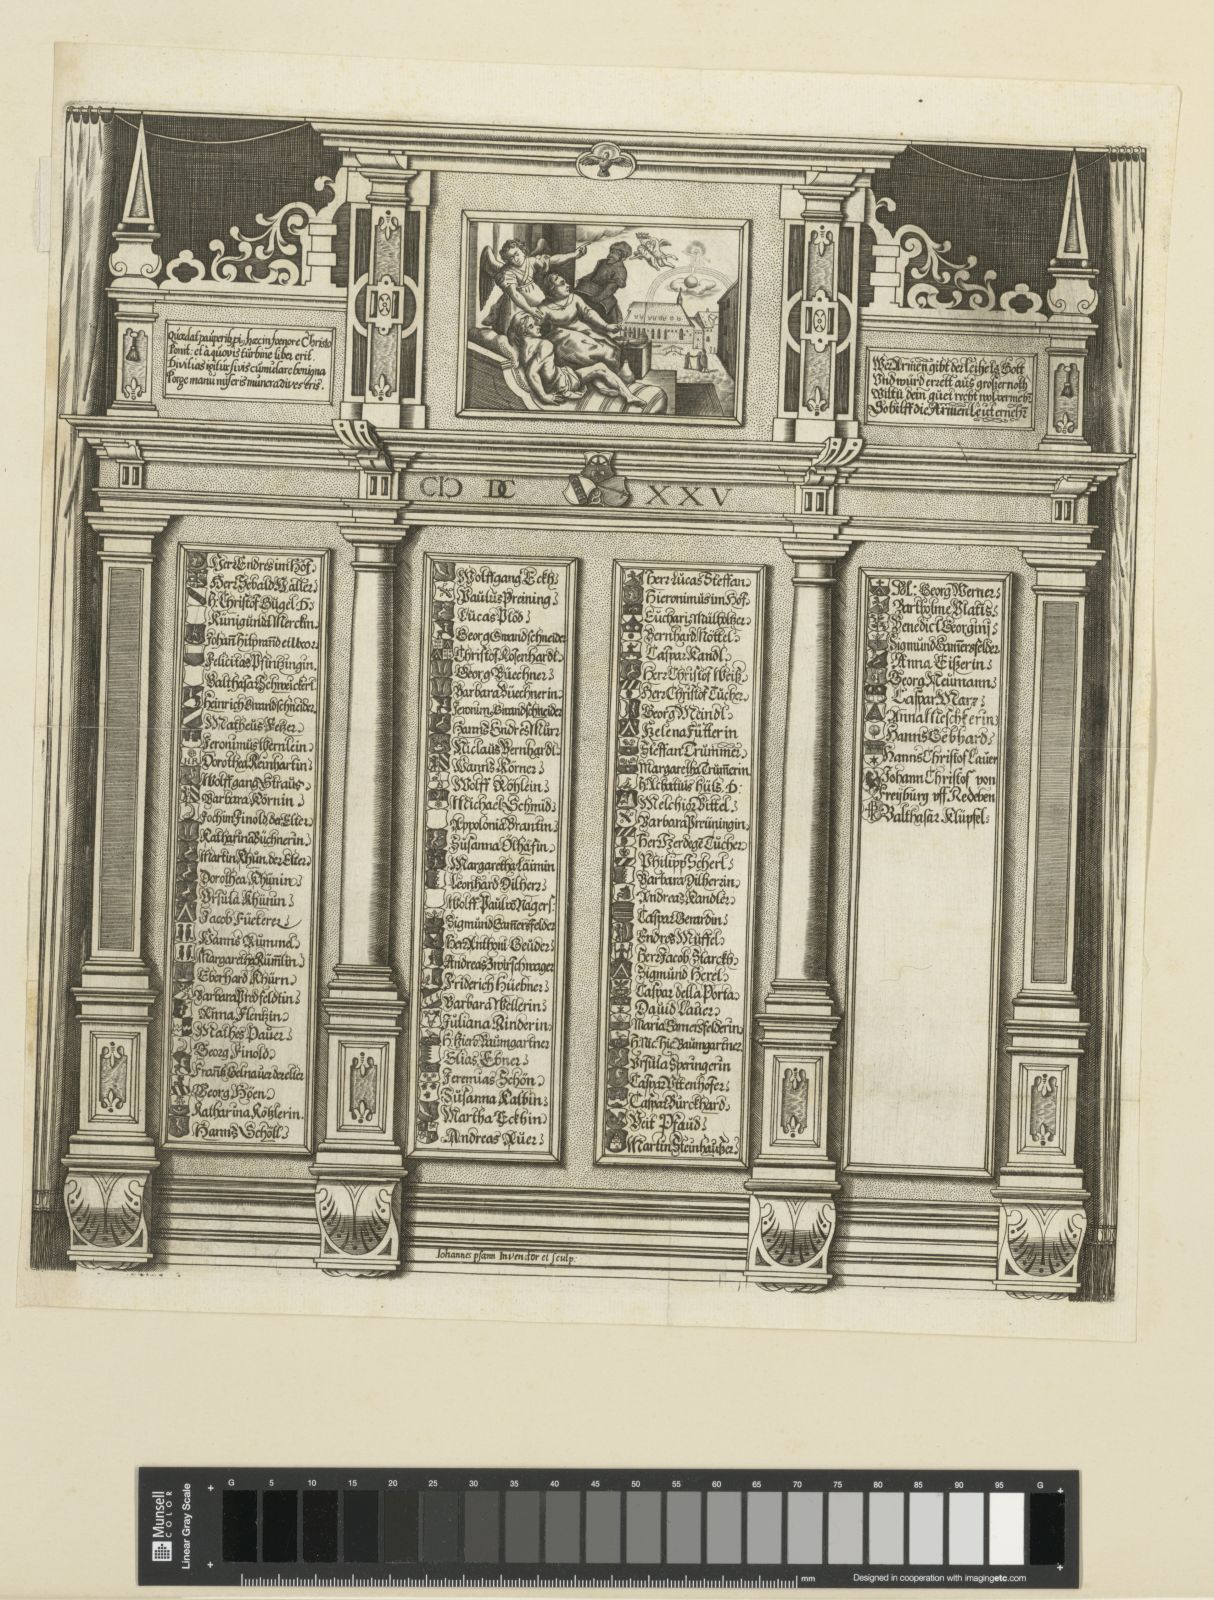 Qui dat pauperibus, hæc in foenore Christo
Ponit: et à quovis turbine liber erit.
Divitias igitur si vis cumulare benigna
Porge manu miseris munera dives eris.
Wer Armen gibt der leihets Gott
Und würd errett aus grosser noth
Wiltu dein guet recht wol vermehrn
So hilff die Armen leut ernehrn
CIƆ DC XXV
Herr Endres im Hof.
Herr Sebald Waller
H. Christof Gügel. D:
Kunigundt Merckin.
Johan Hilprand et Uxor
Felicitas Pfintzingin.
Balthasar Schweickert
Heinrich Gwandschneider
Matheus Fetzer
Jeronimus Wernlein
Dorothea Reinhartin
Wolffgang Straus
Barbara Körnin
Jochim Finold der Elter
Katharina Büchnerin
Martin Khün. der Elter
Dorothea Khünin
Ursula Khünin
Jacob Fückerer
Hanns Rümmel
Margaretha Rümlin
Eberhard Khürn
Barbara
Anna Flentzin
Mathes Pauer
Georg Finold
der elter
Georg Höen
Katharina Kötzlerin.
Hanns Schöll
Wolffgang Eckh
Paulus Preining
Lucas Plöd
Georg Gwandschneider
Christof Rosenhardt
Georg Büechner
Barbara Büechnerin
Jeronim. Gwandschneider
Hanns Endres Mürr
Niclaus Bernhardt
Hanns Körner
Wolff Röhlein
Michael Schmid
Appolonia Brantin
Susanna Ölhafin
Margaretha Läimin
Leonhard Dilherr
Wolff Paulus Nagers
Sigmund Gamersfelder
Herr Anthoni Geuder
Andreas Zwirschwager
Friderich Hüebner
Barbara Wellerin
Juliana Rinderin
H. Hiero. Baumgartner
Elias Ebner
Jeremias Schön
Susanna Kalbin
Martha Eckhin
Andreas Auer
Herr Lucas Steffan
Hieronimus im Hof.
Euchari. Mülholtzer
Bernhard Nöttel
Caspar Kandl
Herr Christof Weiß
Herr Christof Tucher
Georg Meindl
Helena Fütterin
Steffan Trümmer
Margaretha Trümerin
H. Achatius Hüls. D:
Melchior Vittel
Barbara Preüningin
Herr Herdege Tucher
Philipp Scherl
Barbara Dilherrin
Andreas Kandler
Caspar Gerardin
Endres Müffel
Herr Jacob Starckh
Sigmund Herel
Caspar della Porta
Dauid Lauer
Maria Gamersfelderin
H. Nic. Hie. Baumgartner
Ursula Speringerin
Caspar Uttenhofer
Caspar Burckhard
Veit Pfaud
Martin Steinhaußer
Joh: Georg Werner
Bartholme Viatis
Benedict Georginj
Sigmund Gamersfelder
Anna Eißerin
Georg Neumann
Caspar Marx
Anna Nieschterin
Hanns Gebhard
Hanns Christof Lauer
Johann Christof von
Freyburg uff Redeben
Balthasar Klüpfel
Iohannes pfann Inventor et sculp:
Munsell
COLOR
Linear Gray Scale
G 5 10 15 20 25 30 35 40 45 50 55 60 65 70 75 80 85 90 95 G
mm
Designed in cooperation with imagingetc.com